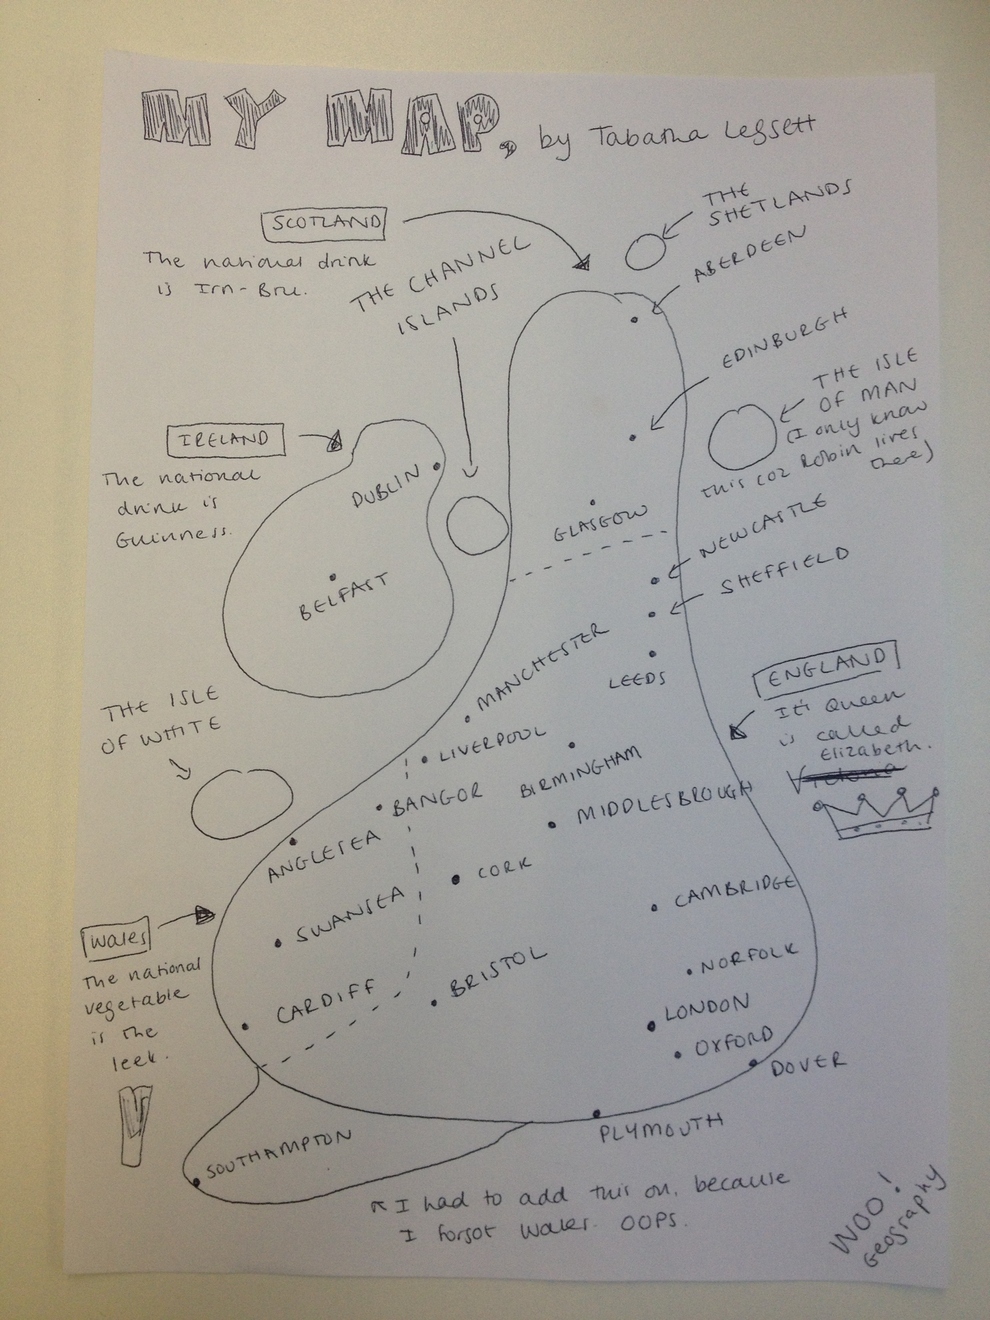 MY MAP, by Tabatha Leggett
SCOTLAND
The national drink
is Irn-Bru.
THE CHANNEL
ISLANDS
THE
SHETLANDS
ABERDEEN
EDINBURGH
THE ISLE
OF MAN
(I only know
this coz Robin lives
there)
IRELAND
The national
drink is
Guinness.
DUBLIN
BELFAST
GLASGOW
NEWCASTLE
SHEFFIELD
MANCHESTER
LEEDS
ENGLAND
It's Queen
is called
Elizabeth.
Victoria
THE ISLE
OF WHITE
LIVERPOOL
BANGOR
BIRMINGHAM
MIDDLESBROUGH
ANGLESEA
CORK
SWANSEA
CAMBRIDGE
Wales
The national
vegetable
is the
leek.
CARDIFF
BRISTOL
NORFOLK
LONDON
OXFORD
DOVER
PLYMOUTH
SOUTHAMPTON
I had to add this on, because
I forgot Wales. OOPS.
WOO!
Geography